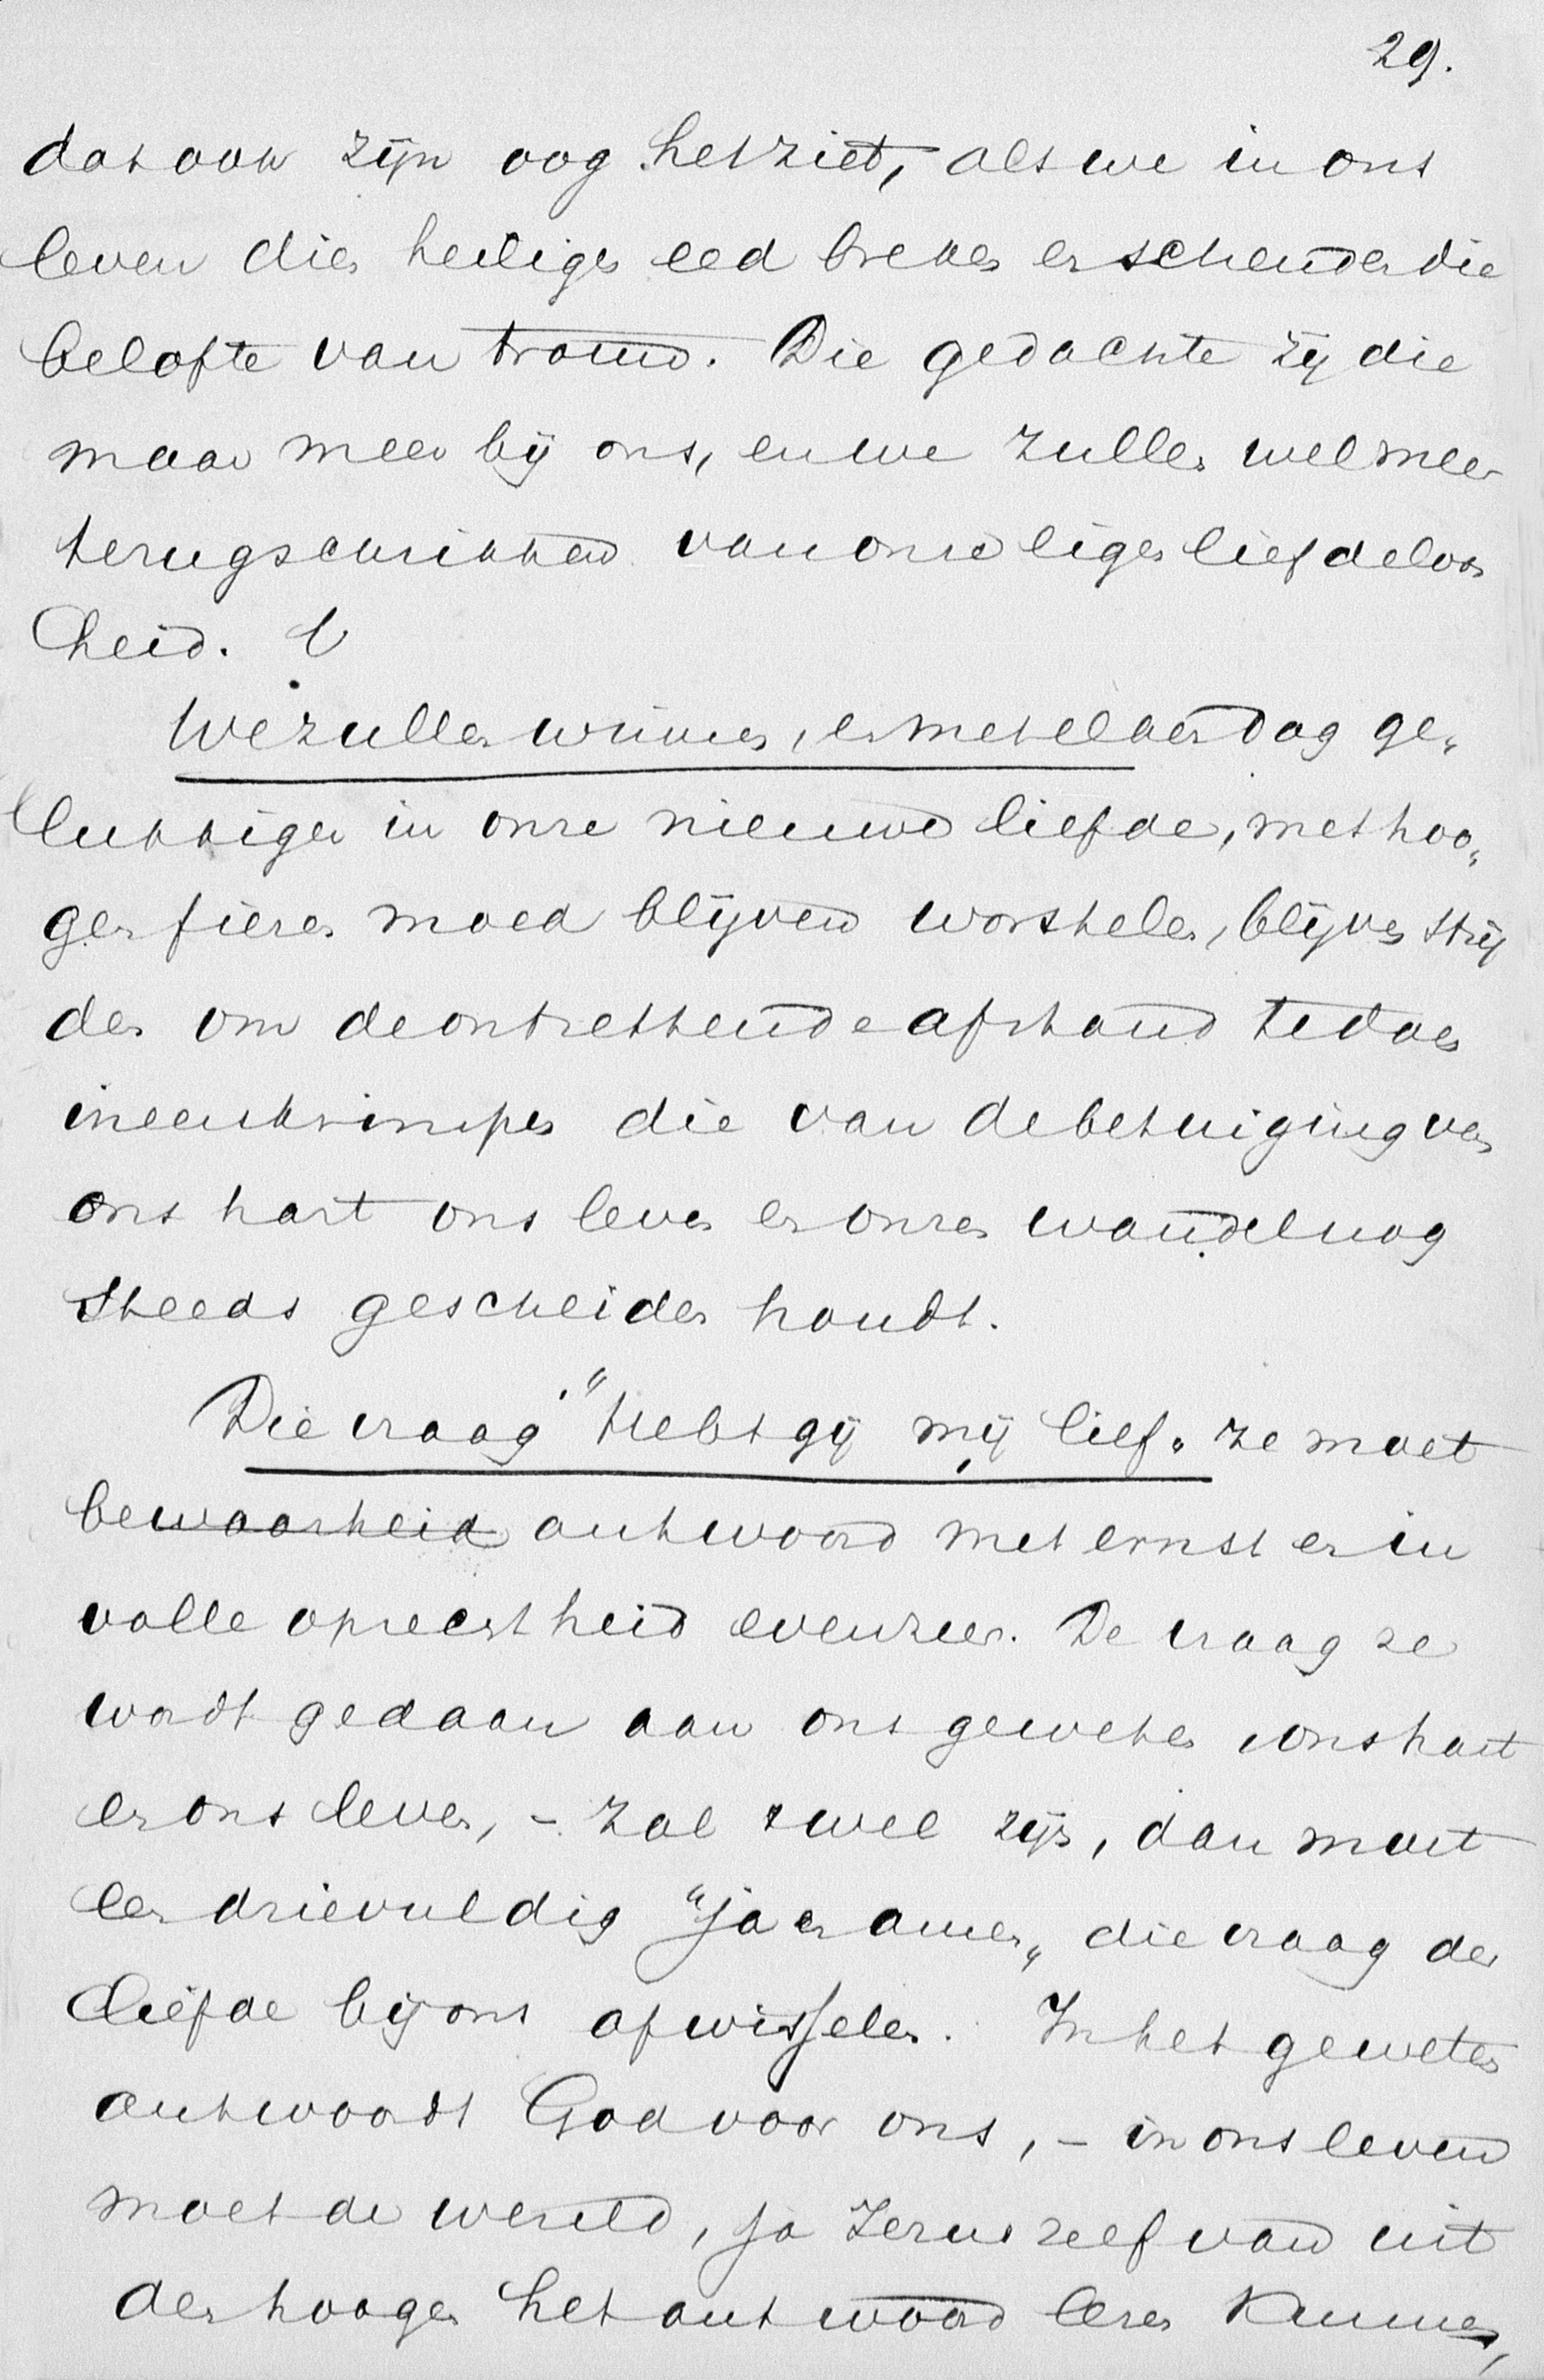 29.
dat ook zijn oog het ziet, als we in ons
leven dien heiligen eed breken en schenden die
belofte van trouw. Die gedachte zij die
maar meer bij ons, en we zullen wel meer
terugschrikken van onze eigen liefdeloos
heid.
We zullen winnen, en met elken dag ge„
lukkiger in onze nieuwe liefde, met hoo„
gen fieren moed blijven worstelen, blijven strij
den om de ontzettende afstand te doen
ineenkrimpen die van de betuiging van
ons hart ons leven en onzen wandel nog
steeds gescheiden houdt.
Die vraag "Hebt gij mij lief„ ze moet
bewaarheid antwoord met ernst en in
volle oprechtheid evenzeer. De vraag ze
wordt gedaan aan ons geweten ons hart
en ons leven, - zal 't wel zijn, dan moet
een drievuldig "ja en amen„ die vraag der
liefde bij ons afwisselen. In het geweten
antwoordt God voor ons, - in ons leven
moet de wereld, ja Jezus zelf van uit
den hoogen het antwoord lezen kunnen,